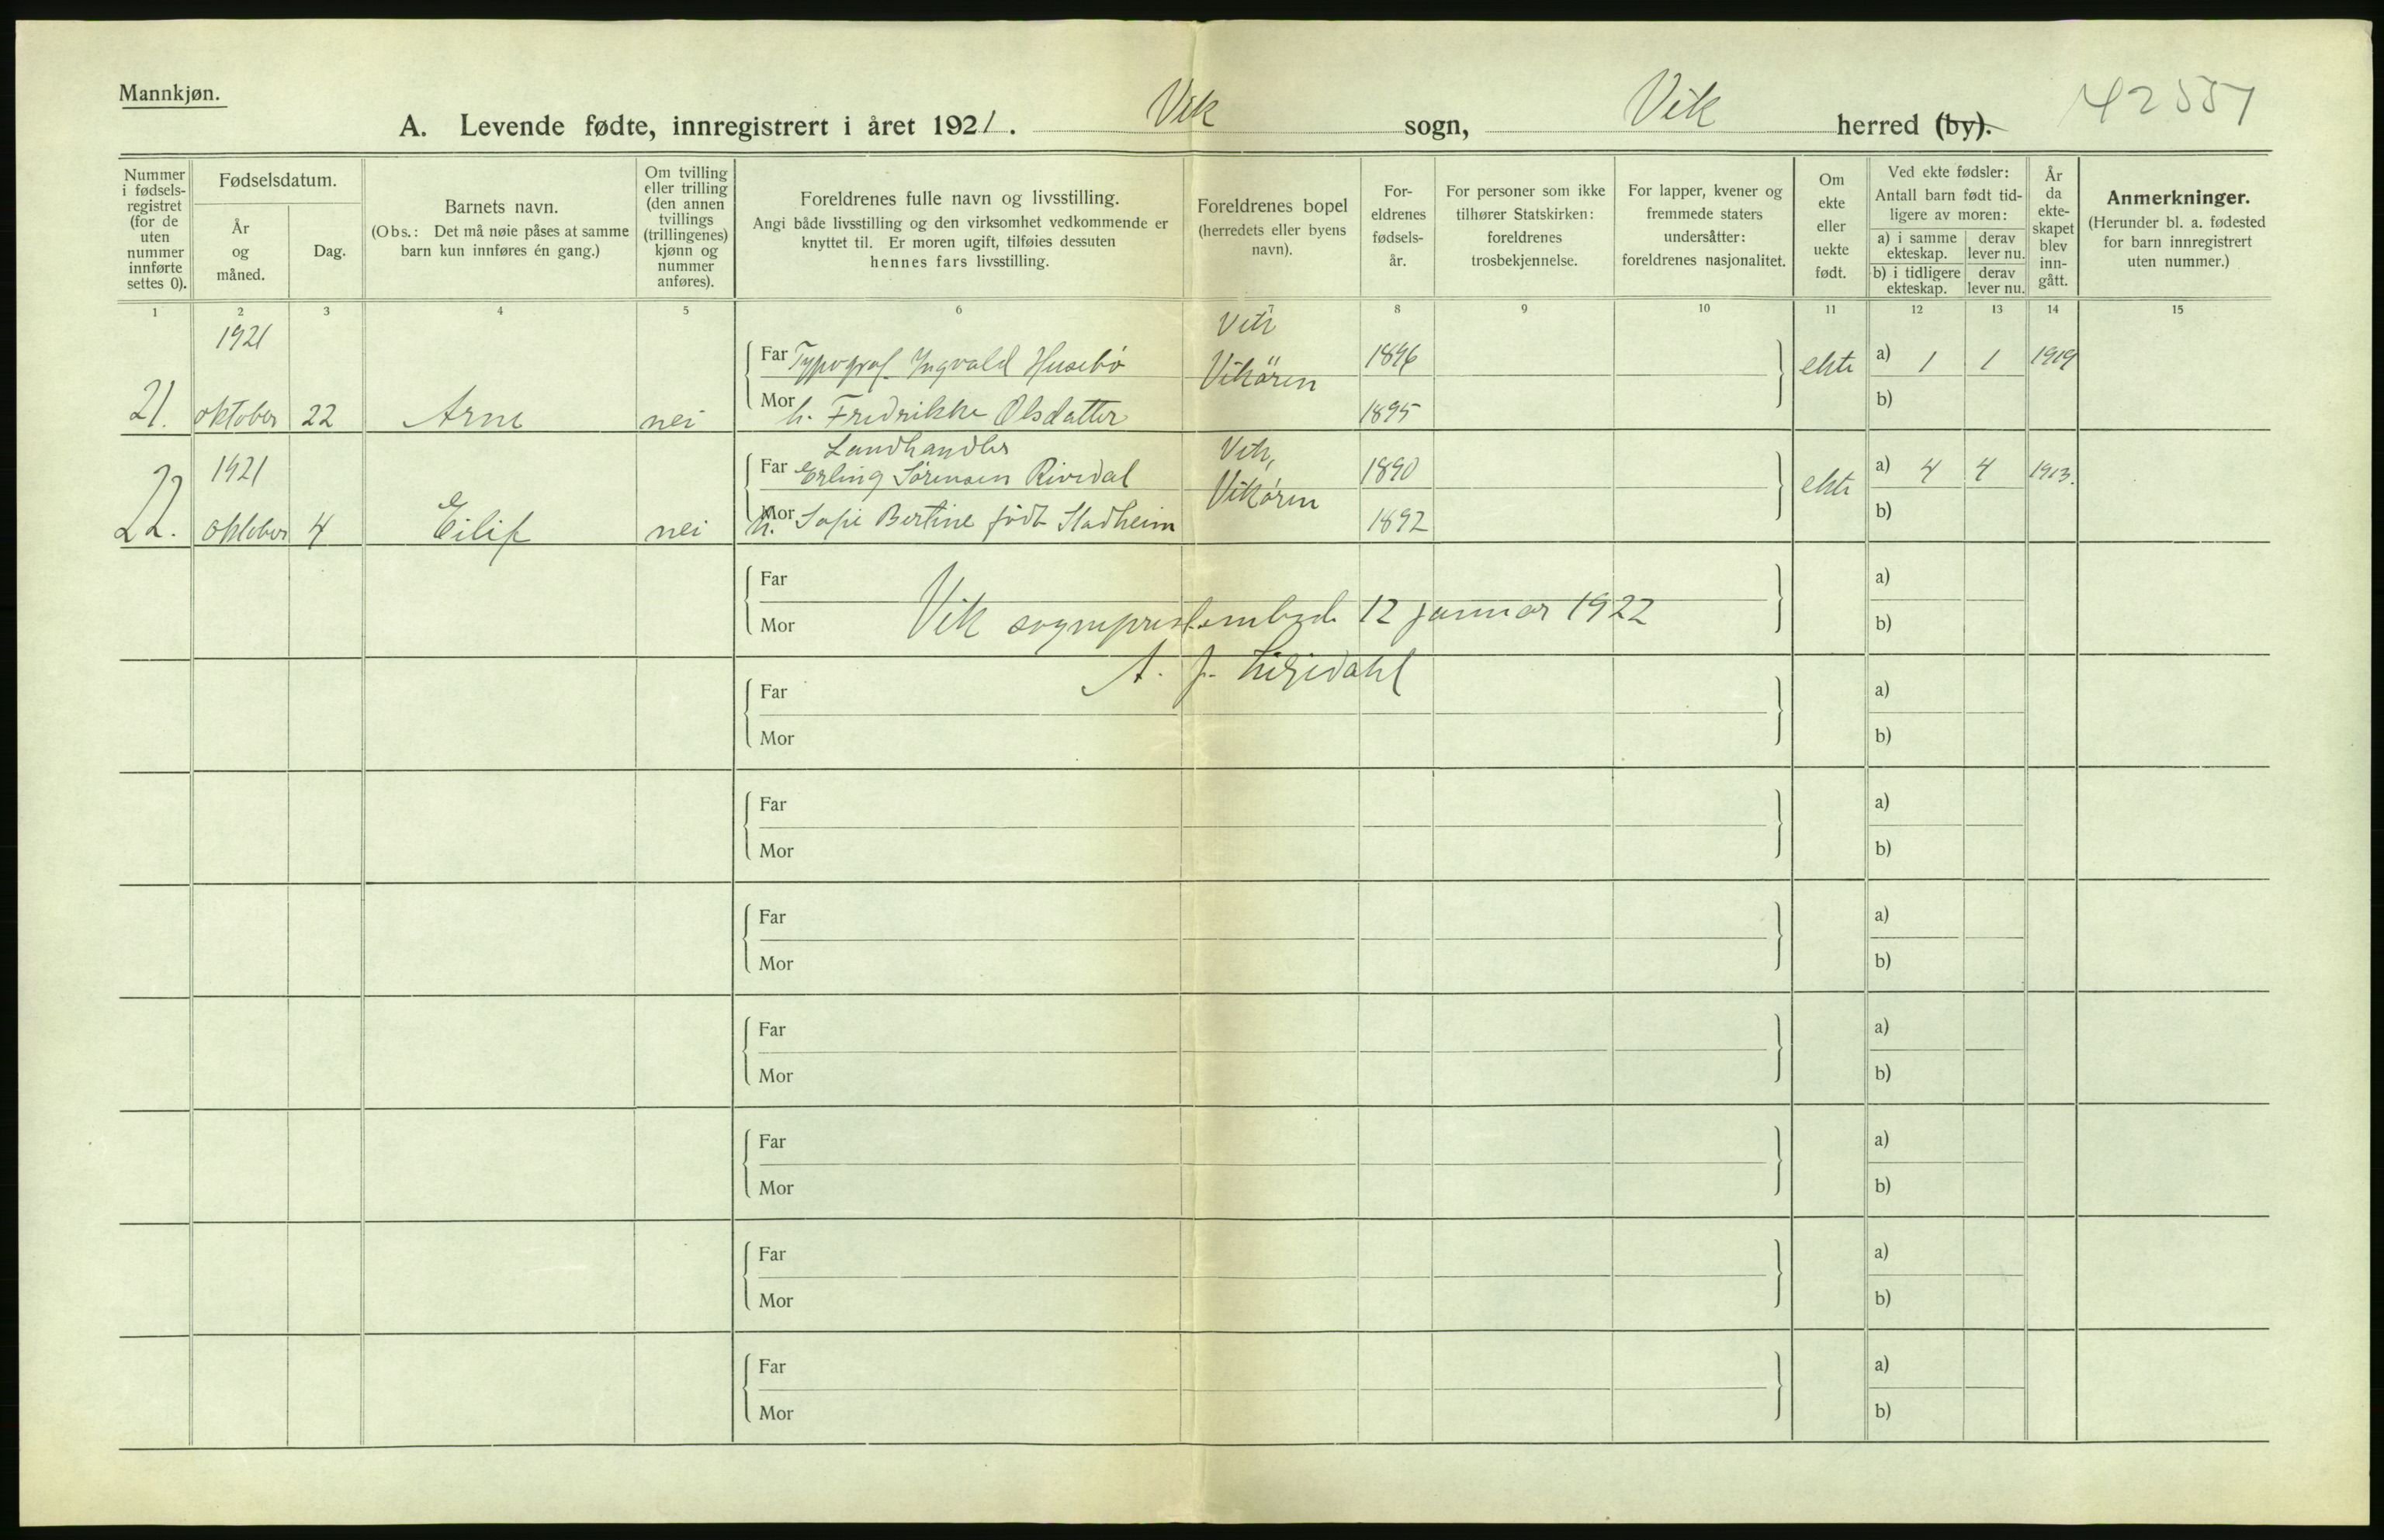 Mannkjøn.
A. Levende fødte, innregistrert i året 1921. Vik sogn, Vik herred (by). 42551
Nummer i fødselsregistret (for de uten nummer innførte settes 0).
Fødselsdatum.
År og måned.
Dag.
Barnets navn.
(Obs.: Det må nøie påses at samme barn kun innføres én gang.)
Om tvilling eller trilling (den annen tvillings (trillingenes) kjønn og nummer anføres).
Foreldrenes fulle navn og livsstilling.
Angi både livsstilling og den virksomhet vedkommende er knyttet til. Er moren ugift, tilføies dessuten hennes fars livsstilling.
Foreldrenes bopel (herredets eller byens navn).
Foreldrenes fødselsår.
For personer som ikke tilhører Statskirken: foreldrenes trosbekjennelse.
For lapper, kvener og fremmede staters undersåtter: foreldrenes nasjonalitet.
Om ekte eller uekte født.
Ved ekte fødsler:
Antall barn født tidligere av moren:
a) i samme ekteskap. derav lever nu.
b) i tidligere ekteskap. derav lever nu.
År da ekteskapet blev inngått.
Anmerkninger.
(Herunder bl. a. fødested for barn innregistrert uten nummer.)
1 2 3 4 5 6 7 8 9 10 11 12 13 14 15
1921 Far Typograf Ingvald Husebö Vik Vikören 1896 ekte a) 1 1 1919
21. oktober 22 Arne nei Mor h. Fredrikke Olsdatter 1895 b)
1921 Landhandler
Far Erling Sörensen Rivedal Vik, Vikören 1890 ekte a) 4 4 1913.
22. oktober 4 Eilif nei Mor h. Sofie Bertine födt Stadheim 1892 b)
Far a)
Mor Vik sogneprestembede 12 januar 1922 b)
A. J. Liljedahl
Far a)
Mor b)
Far a)
Mor b)
Far a)
Mor b)
Far a)
Mor b)
Far a)
Mor b)
Far a)
Mor b)
Far a)
Mor b)